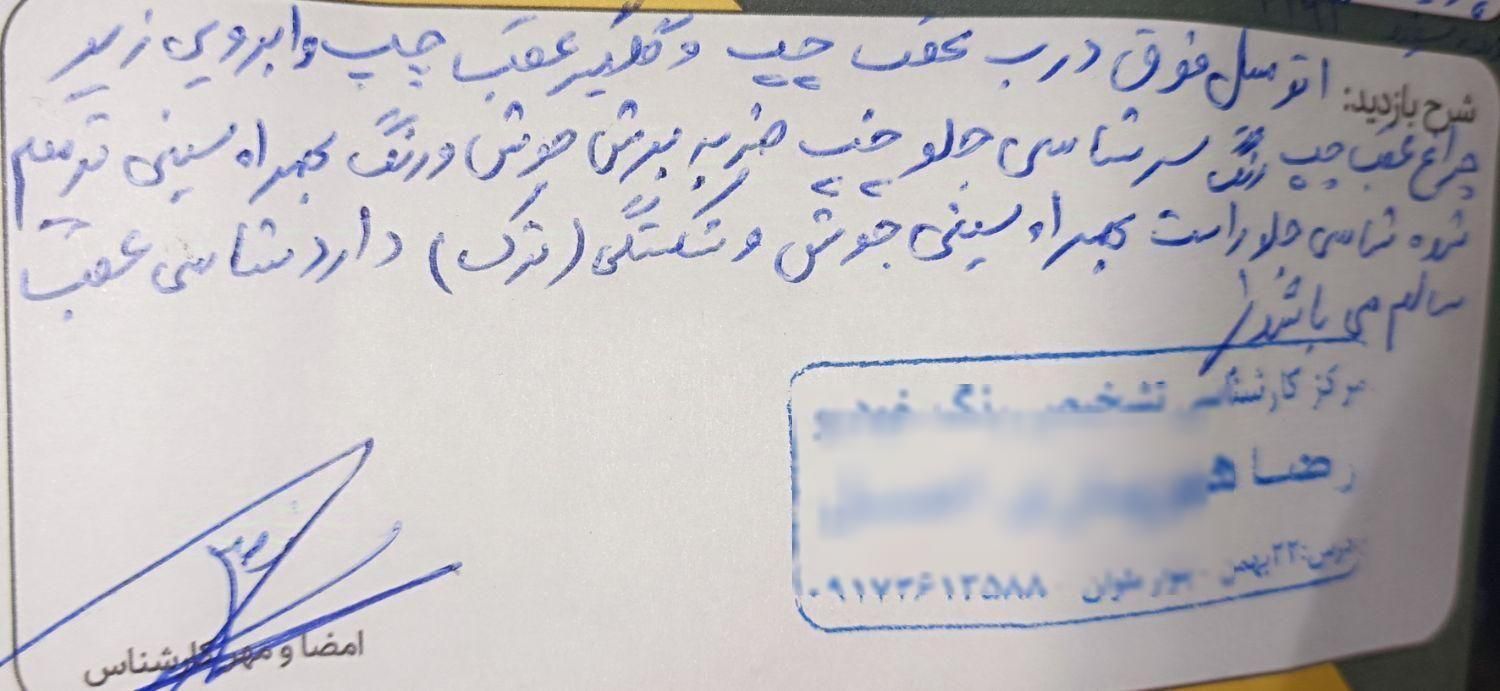 شرح بازدید: اتومبیل فوق درب عقب چپ و گلگیر عقب چپ و ابرویی زیر
چراغ عقب چپ رنگ سر شاسی جلو چپ ضربه برش جوش و رنگ بهمراه سینی ترمیم
شده شاسی جلو راست بهمراه سینی جوش و شکستگی (ترک) دارد شاسی عقب
سالم می باشد/
مرکز کارشناسی تشخیص رنگ خودرو
رضا
آدرس: ۲۲ بهمن - بلوار ملوان ۰۹۱۷۳۶۱۳۵۸۸
امضا و مهر کارشناس